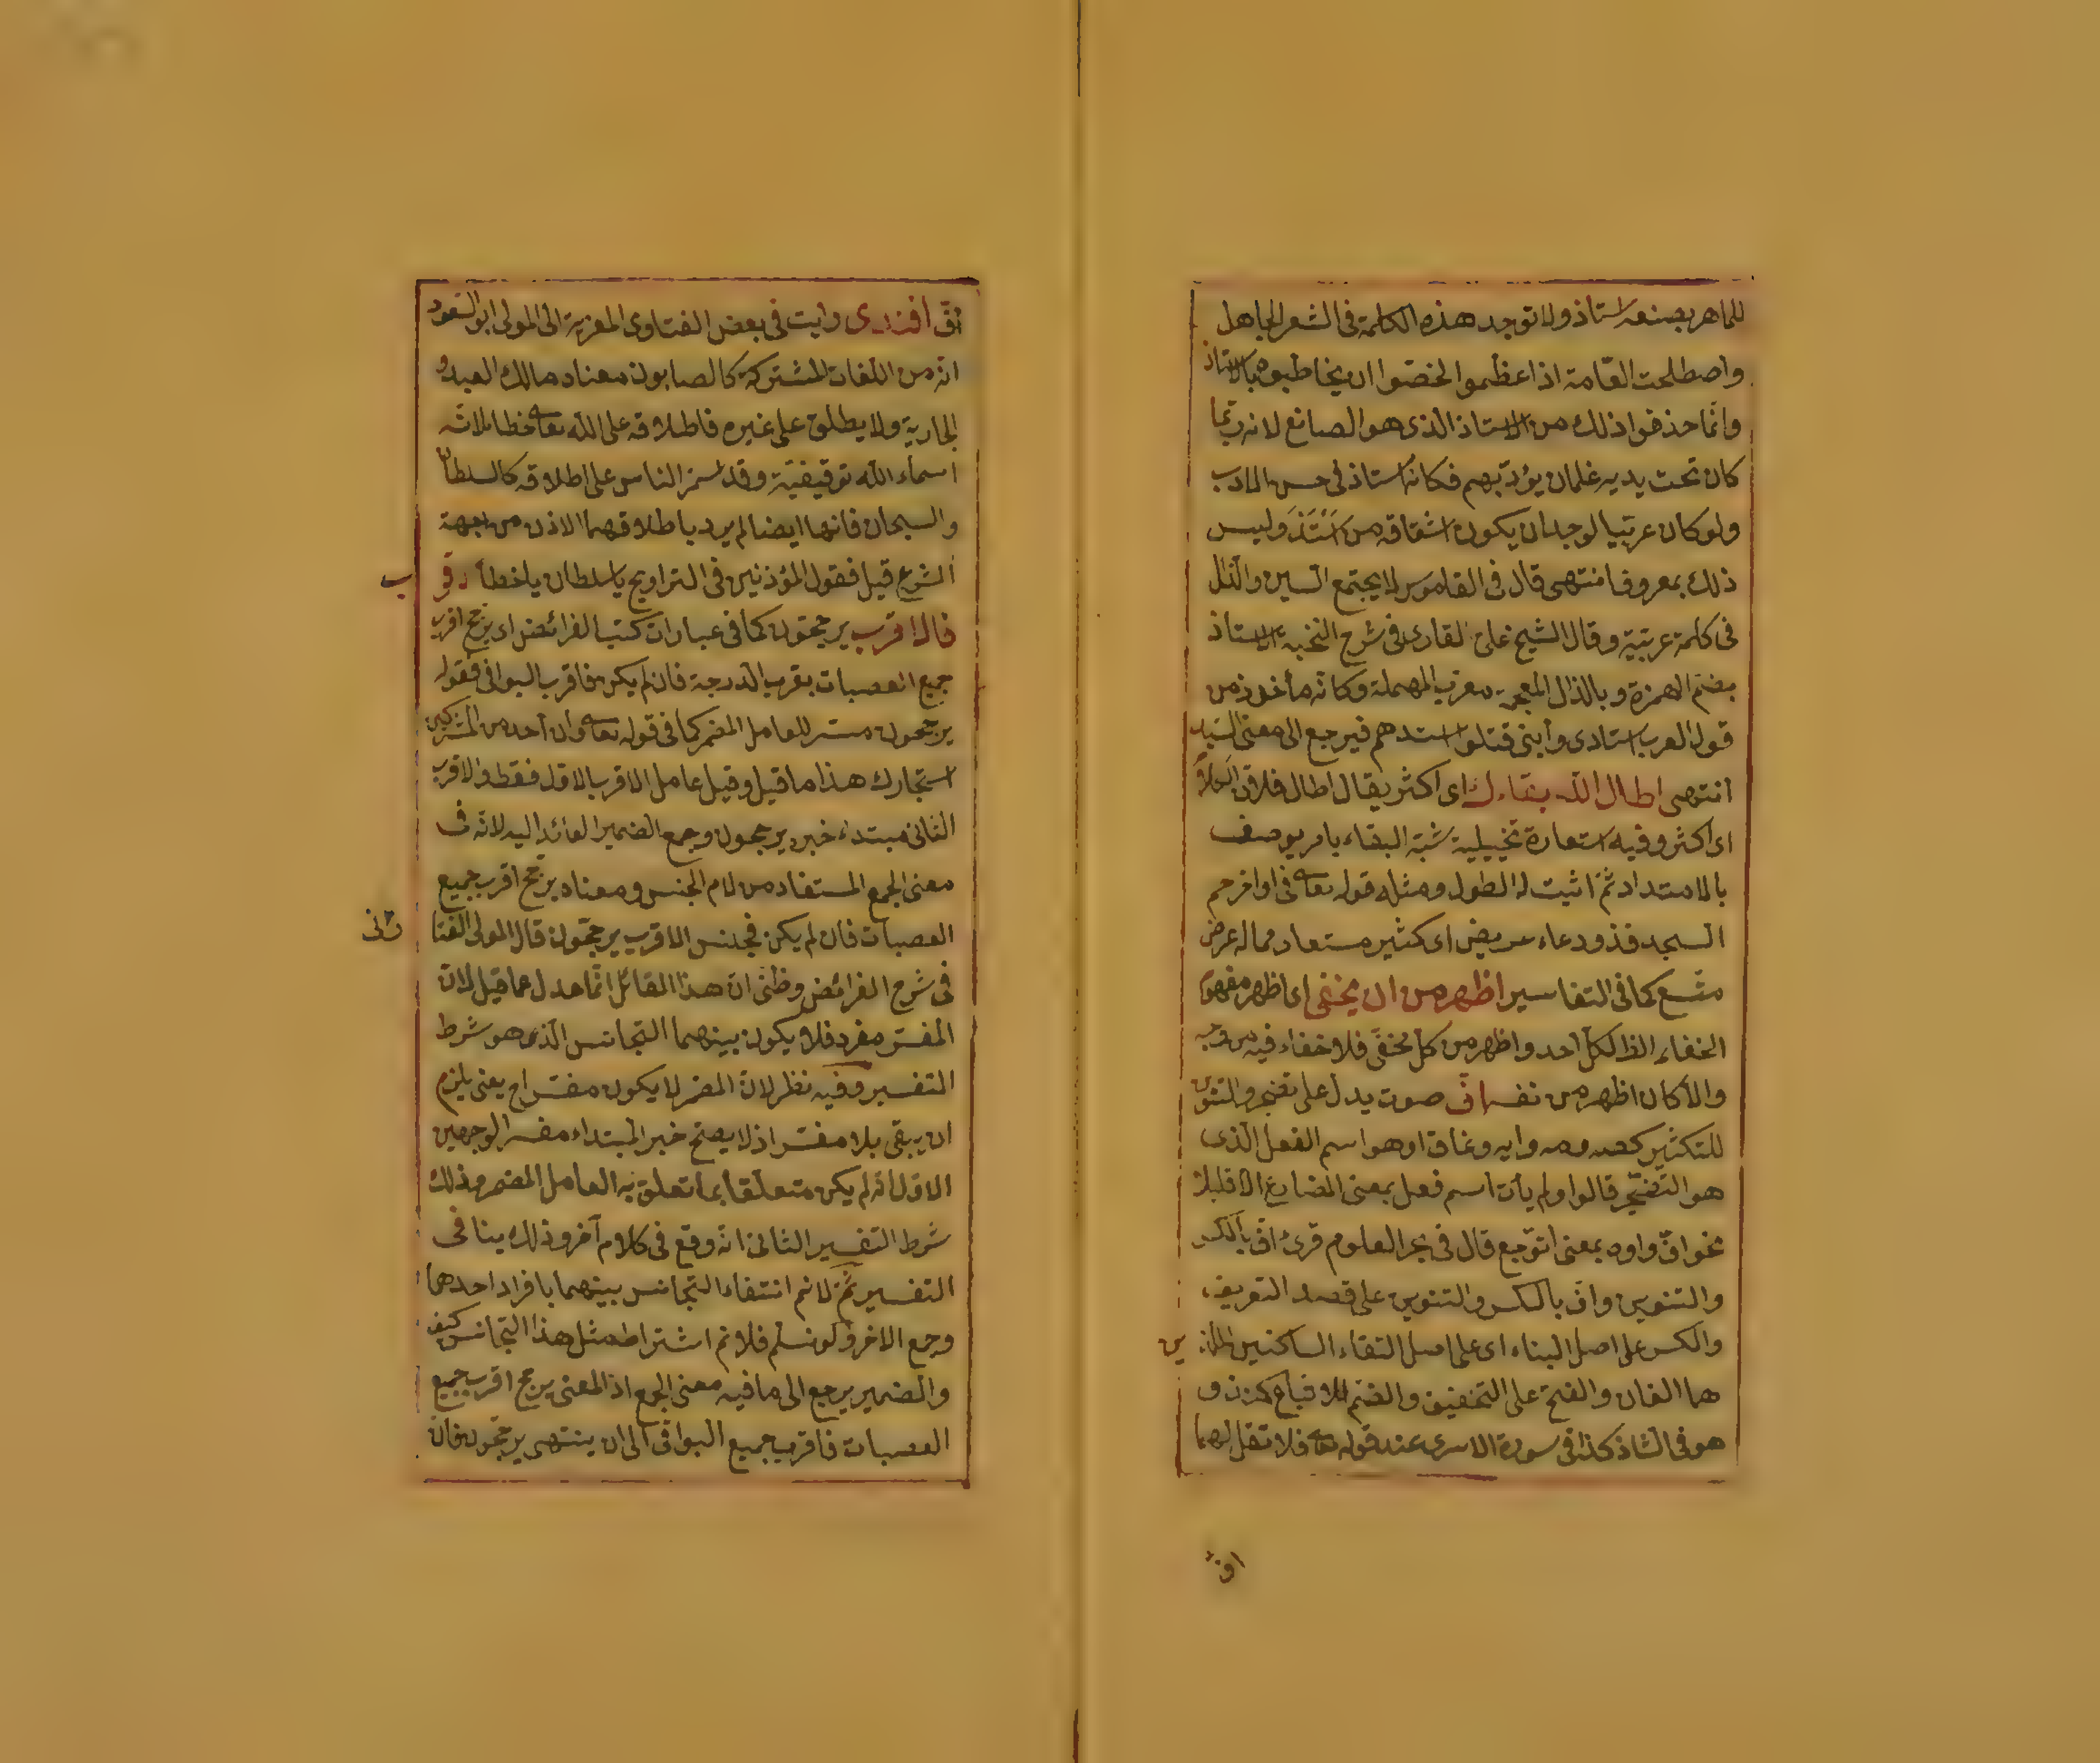 للماهر بصنعه استاذ ولا توجد هذه الكلمة فى الشعر الجاهل
واصطلحت العامة اذا عظموا الخصّوا ان يخاطبوه بالاستاذ
وانما حذفوا ذلك من الاستاذ الذى هو الصانع لانه ربما
كان تحت يديه غلمان يؤدّبهم فكانه استاذ فى حسن الادب
ولو كان عربيا لوجد ان يكون اشتقاقه من استذ وليس
ذلك بمعروف انتهى قال فى القاموس لا يجتمع السين والذال
فى كلمة عربية وقال الشيخ على القارى فى شرح النخبة الاستاذ
بضم الهمزة وبالذال المعجمة معرب المهملة وكانه مأخوذ من
قول العرب استادى وأبنى قتلوا استدهم فيرجع الى معنى السيد
انتهى اطال الله بقاءك اى اكثر يقال اطال فلان الكلام
اى اكثر وفيه استعارة تخييلية شبه البقاء بامر يوصف
بالامتداد ثم اثبت له الطول ومثله قوله تعا فى اواخر حم
السجد فذو دعاء عريض اى كثير مستعار مما له عرض
متسع كما فى التفاسير اظهر من ان يخفى اى اظهر مفهوم
الخفاء لكل احد واظهر من كل مخفى فلا خفاء فيه من وجه
والا كان اظهر من نفسه اف صوت يدل على تضجر والتنوين
للتكثير كصه ومه وايه وغاق او هو اسم الفعل الذى
هو التضجر قالوا ولم يأت اسم فعل بمعنى المضارع الا قليلا
نحو اف واوه بمعنى اتوجع قال فى بحر العلوم قرئ اف بالكسر
والتنوين واف بالكسر والتنوين على قصد التعريف
والكسر على اصل البناء اى على اصل التقاء الساكنين اللذين
هما الفان والفتح على التخفيف والضم للاتباع كمنذ و
هو فى الشاذ كذا فى سورة الاسرى عند قوله تعا فلا تقل لهما
اف
اف افندى رايت فى بعض الفتاوى المعزية الى المولى ابو السعود
انه من اللغات المشتركة كالصابون معناه مالك العبد و
الجارية ولا يطلق على غيره فاطلاقه على الله تعا خطا لانه
اسماء الله توقيفية وقد استمر الناس على اطلاقه كالسلطان
والسبحان فانهما ايضا لم يرد باطلاقهما الاذن من جهة
الشرع قيل فقول المؤذنين فى التراويح يا سلطان يا خطأ اقرب
فالاقرب يرجحون كما فى عبارات كتب الفرائض اى يرجح اقرب
جميع العصبات بقرب الدرجة فان لم يكن فاقرب البواقى فقوله
يرجحون مفسر للعامل المضمر كما فى قوله تعا وان احد من المشركين
استجارك هذا ما قيل وقيل عامل الاقرب الاول فقط والاقرب
الثانى مبتداء خبره يرجحون وجمع الضمير العائد اليه لانه فى
معنى الجمع المستفاد من لام الجنس ومعناه يرجح اقرب جميع
العصبات فان لم يكن فجنس الاقرب يرجحون قال المولى الفنارى
فى شرح الفرائض وظنى ان هذا القائل انما عدل عما قيل لان
المفسر مفرد فلا يكون بينهما التجانس الذى هو شرط
التفسير وفيه نظر لان المضمر لا يكون مفسرا ح يعنى يلزم
ان يبقى بلا مفسر اذ لا يصح خبر المبتداء مفسر الوجهين
الاول انه لم يكن متعلقا بما تعلق به العامل المضمر وذلك
شرط التفسير الثانى انه وقع فى كلام آخر وذلك ينافى
التفسير ثم لا نم انتفاء التجانس بينهما بافراد احدهما
وجمع الاخر ولو نسلم فلا نم اشتراط مثل هذا التجانس كيف
والضمير يرجع الى ما فيه معنى الجمع اذ المعنى يرجح اقرب جميع
العصبات فاقرب جميع البواقى الى ان ينتهى يرجحون فان